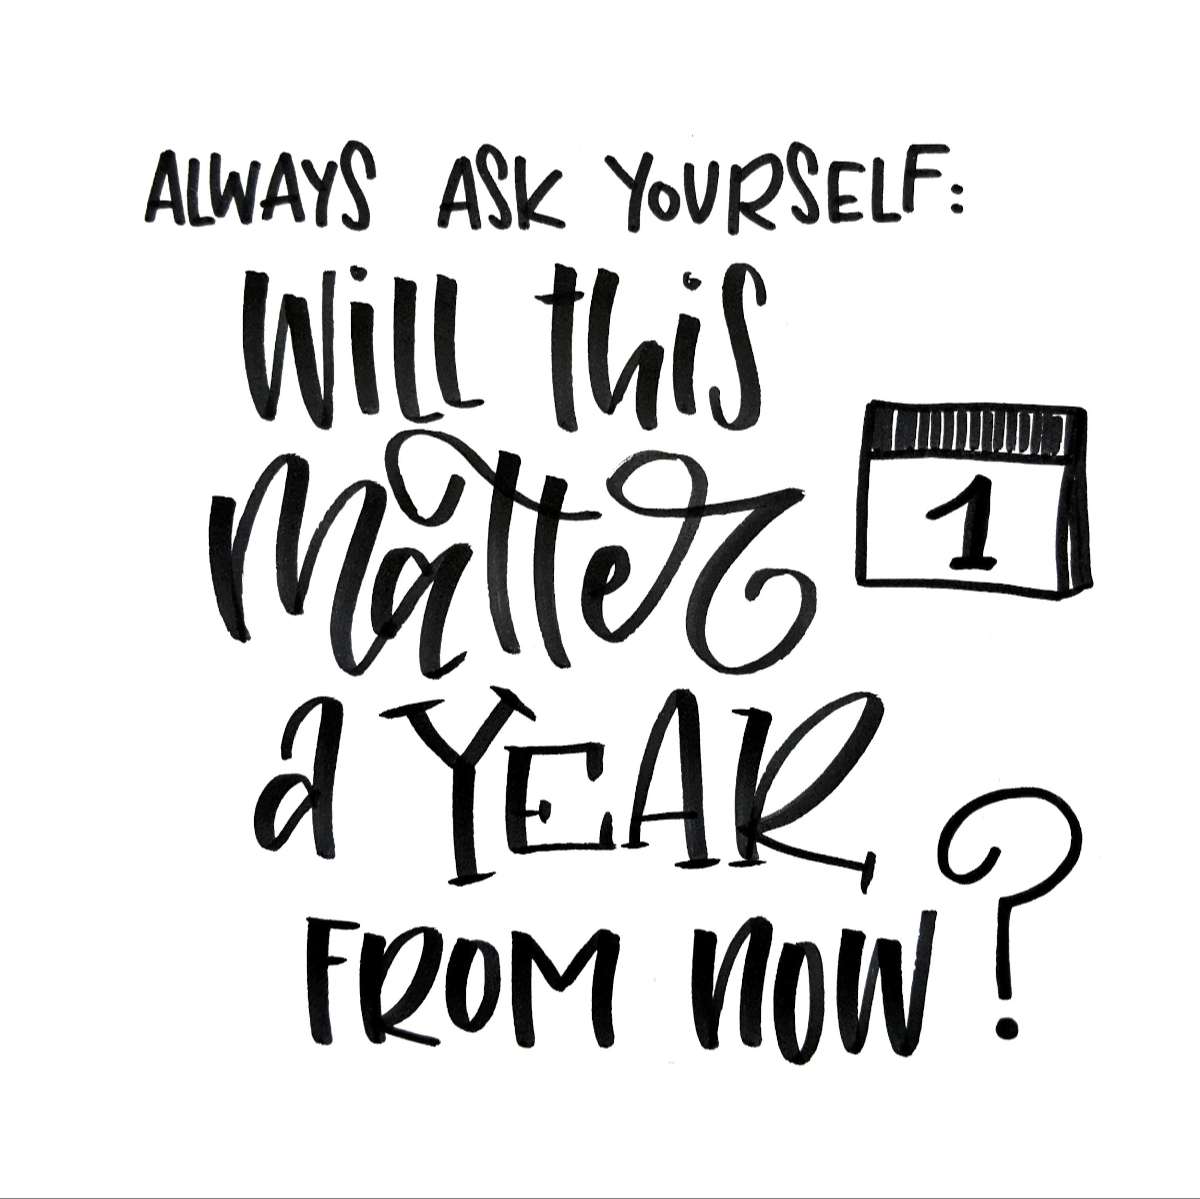 ALWAYS ASK YOURSELF:
Will this
matter
1
a YEAR
FROM NOW?